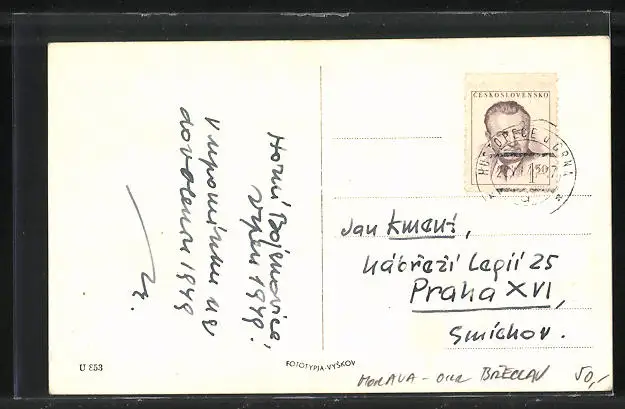 Horní Bojanovice,
srpen 1949.
V upomínku na
dovolenou 1949
ČESKOSLOVENSKO
HUSTOPEČE U BRNA
Jan Kmenš,
Nábřeží Legií 25
Praha XVI,
Smíchov.
U 853
FOTOTYPIA-VYŠKOV
MORAVA - OKR BŘECLAV 50,-